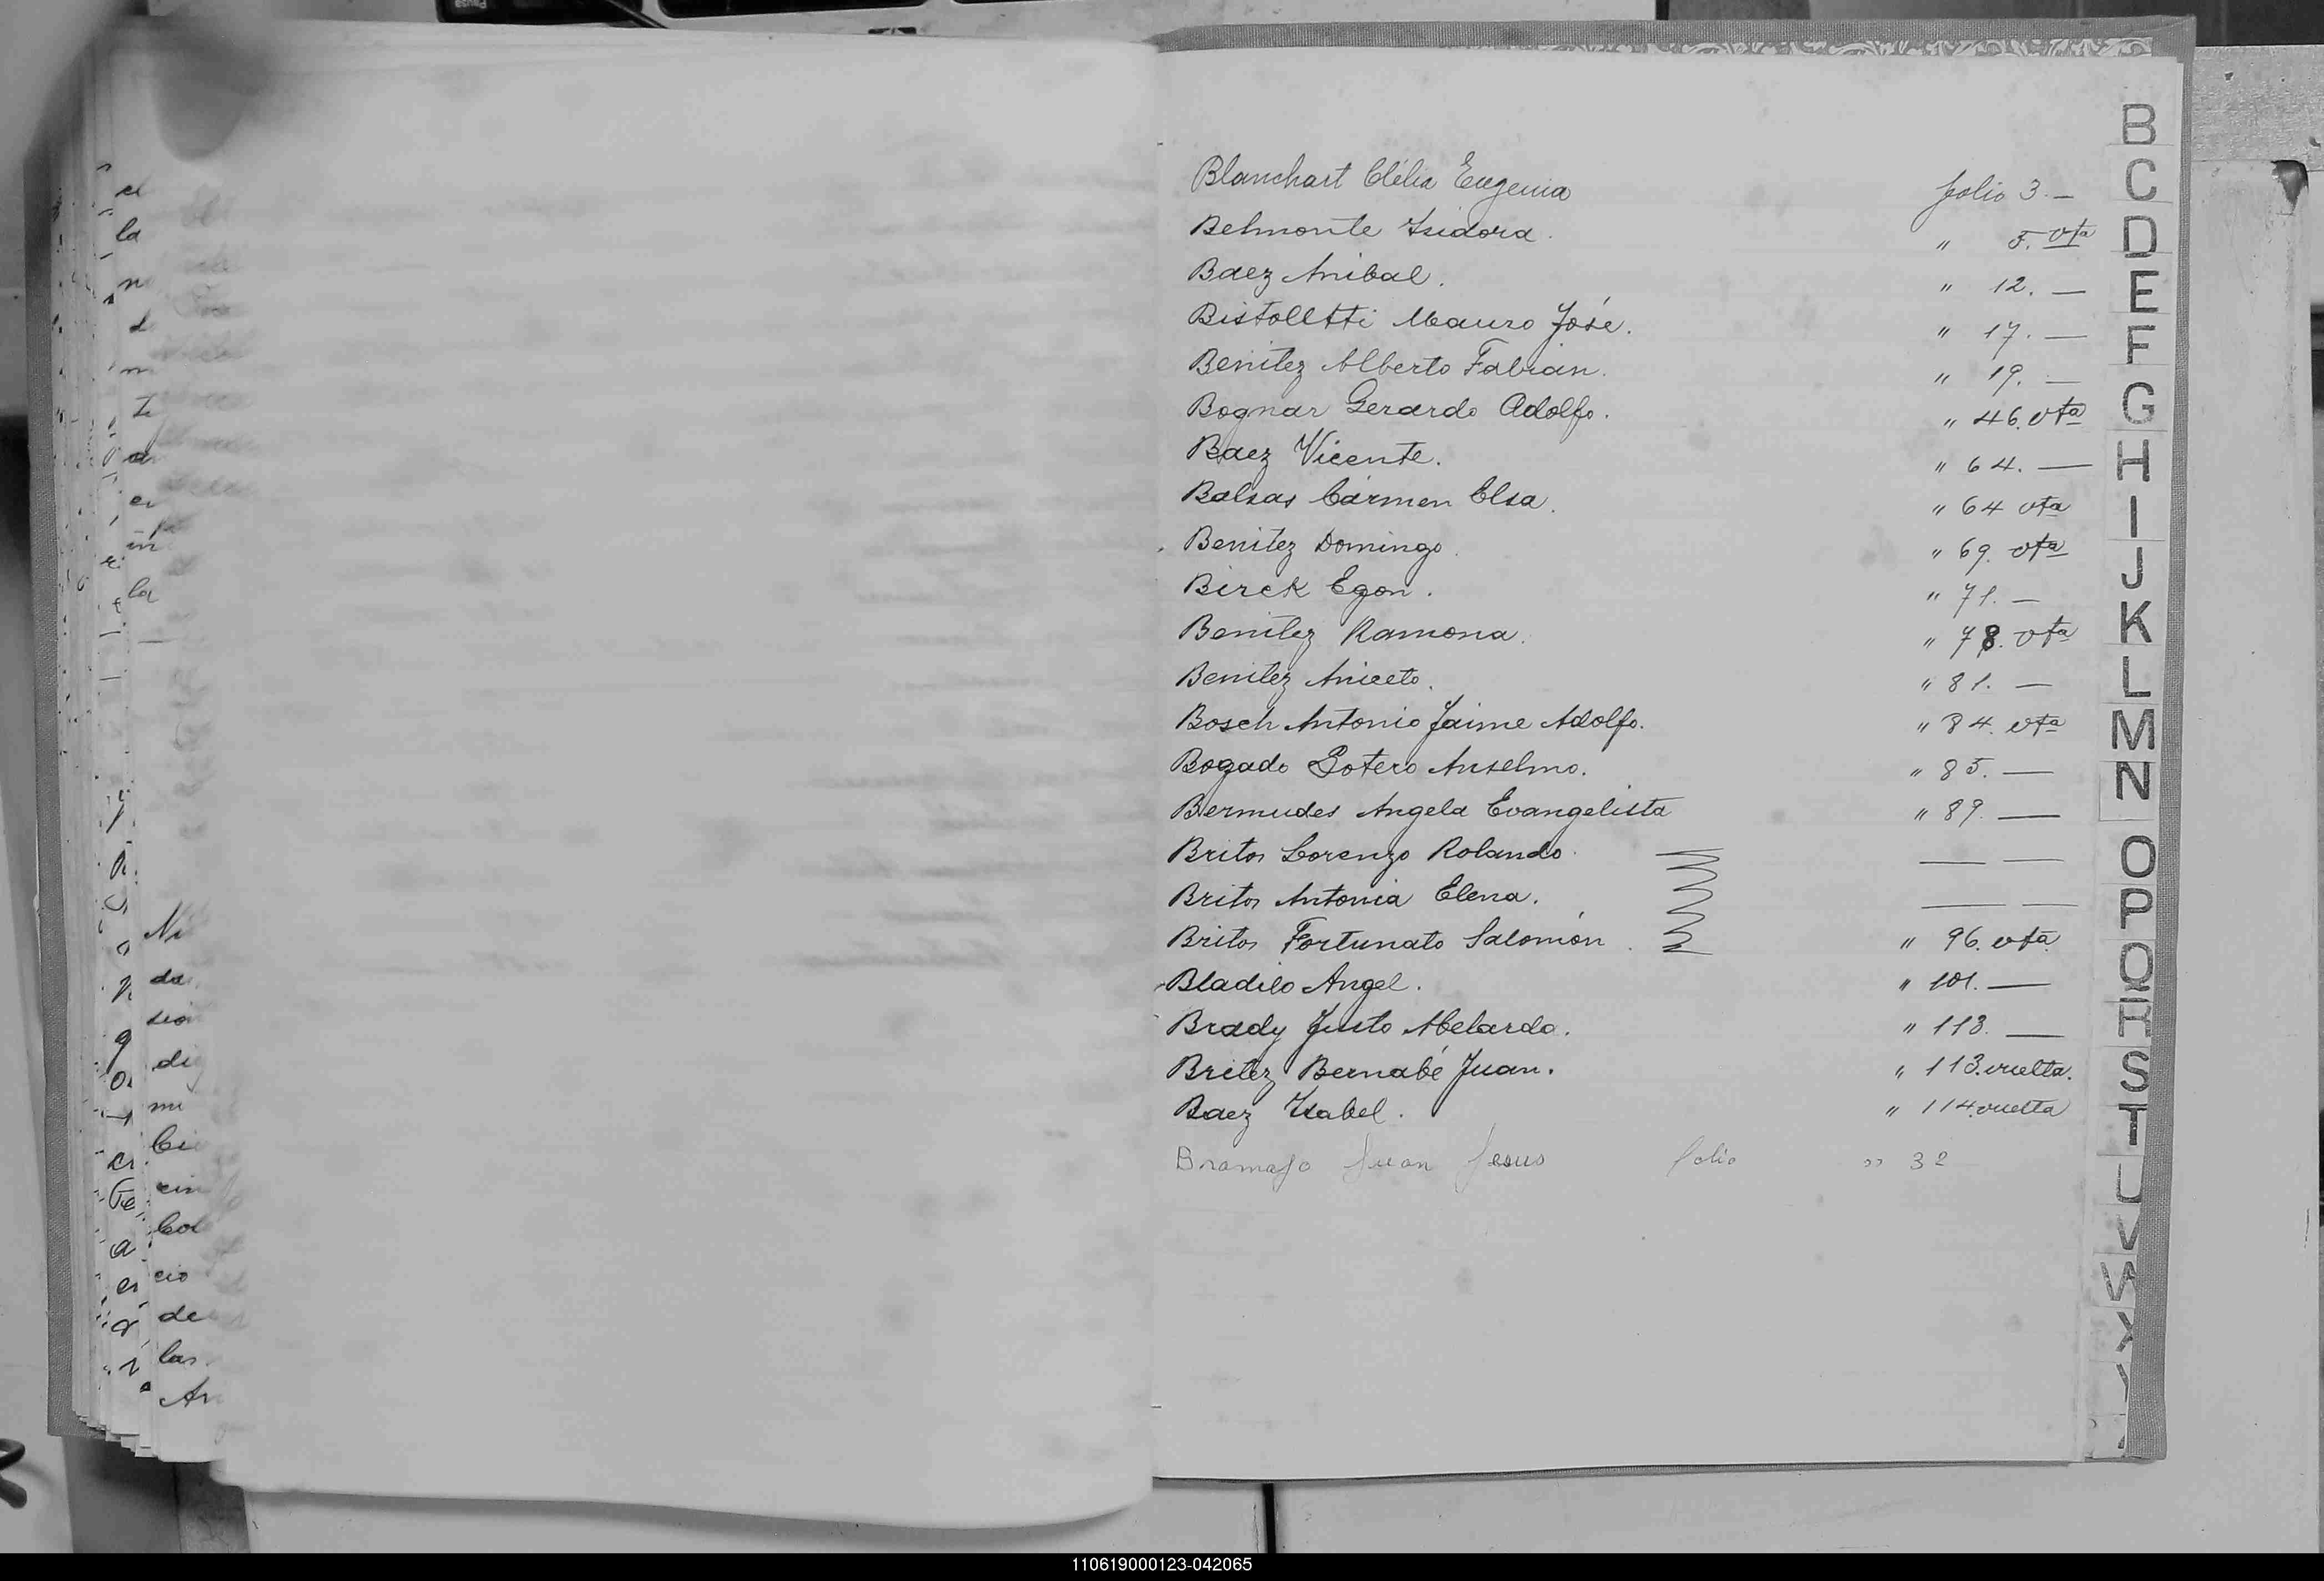 Blanchart Clélia Eugenia folio 3. —
Belmonte Isidora. " 5. vta
Baez Anibal. " 12. —
Bistolétti Mauro José. " 17. —
Benitez Alberto Fabián. " 19. —
Bognar Gerardo Adolfo. " 46. vta
Baez Vicente. " 64. —
Balsas Cármen Elsa. " 64 vta
Benitez Domingo. " 69. vta
Birck Egon. " 71. —
Benitez Ramona. " 78. vta
Benitez Aniceto. " 81. —
Bosch Antonio Jaime Adolfo. " 84. vta
Bogado Sotero Anselmo. " 85. —
Bermudes Angela Evangelista " 89. —
Britos Lorenzo Rolando. — —
Britos Antonia Elena. — —
Britos Fortunato Salomón. " 96. vta
Bladilo Angel. " 101. —
Brady Justo Abelardo. " 113. —
Britez Bernabé Juan. " 113. vuelta.
Baez Isabel. " 114 vuelta
Juan Jesus folio " 32
B
C
D
E
F
G
H
I
J
K
L
M
N
O
P
Q
R
S
T
U
V
W
X
Y
el
la
Ni
da
dig
mi
de
las
An
110619000123-042065